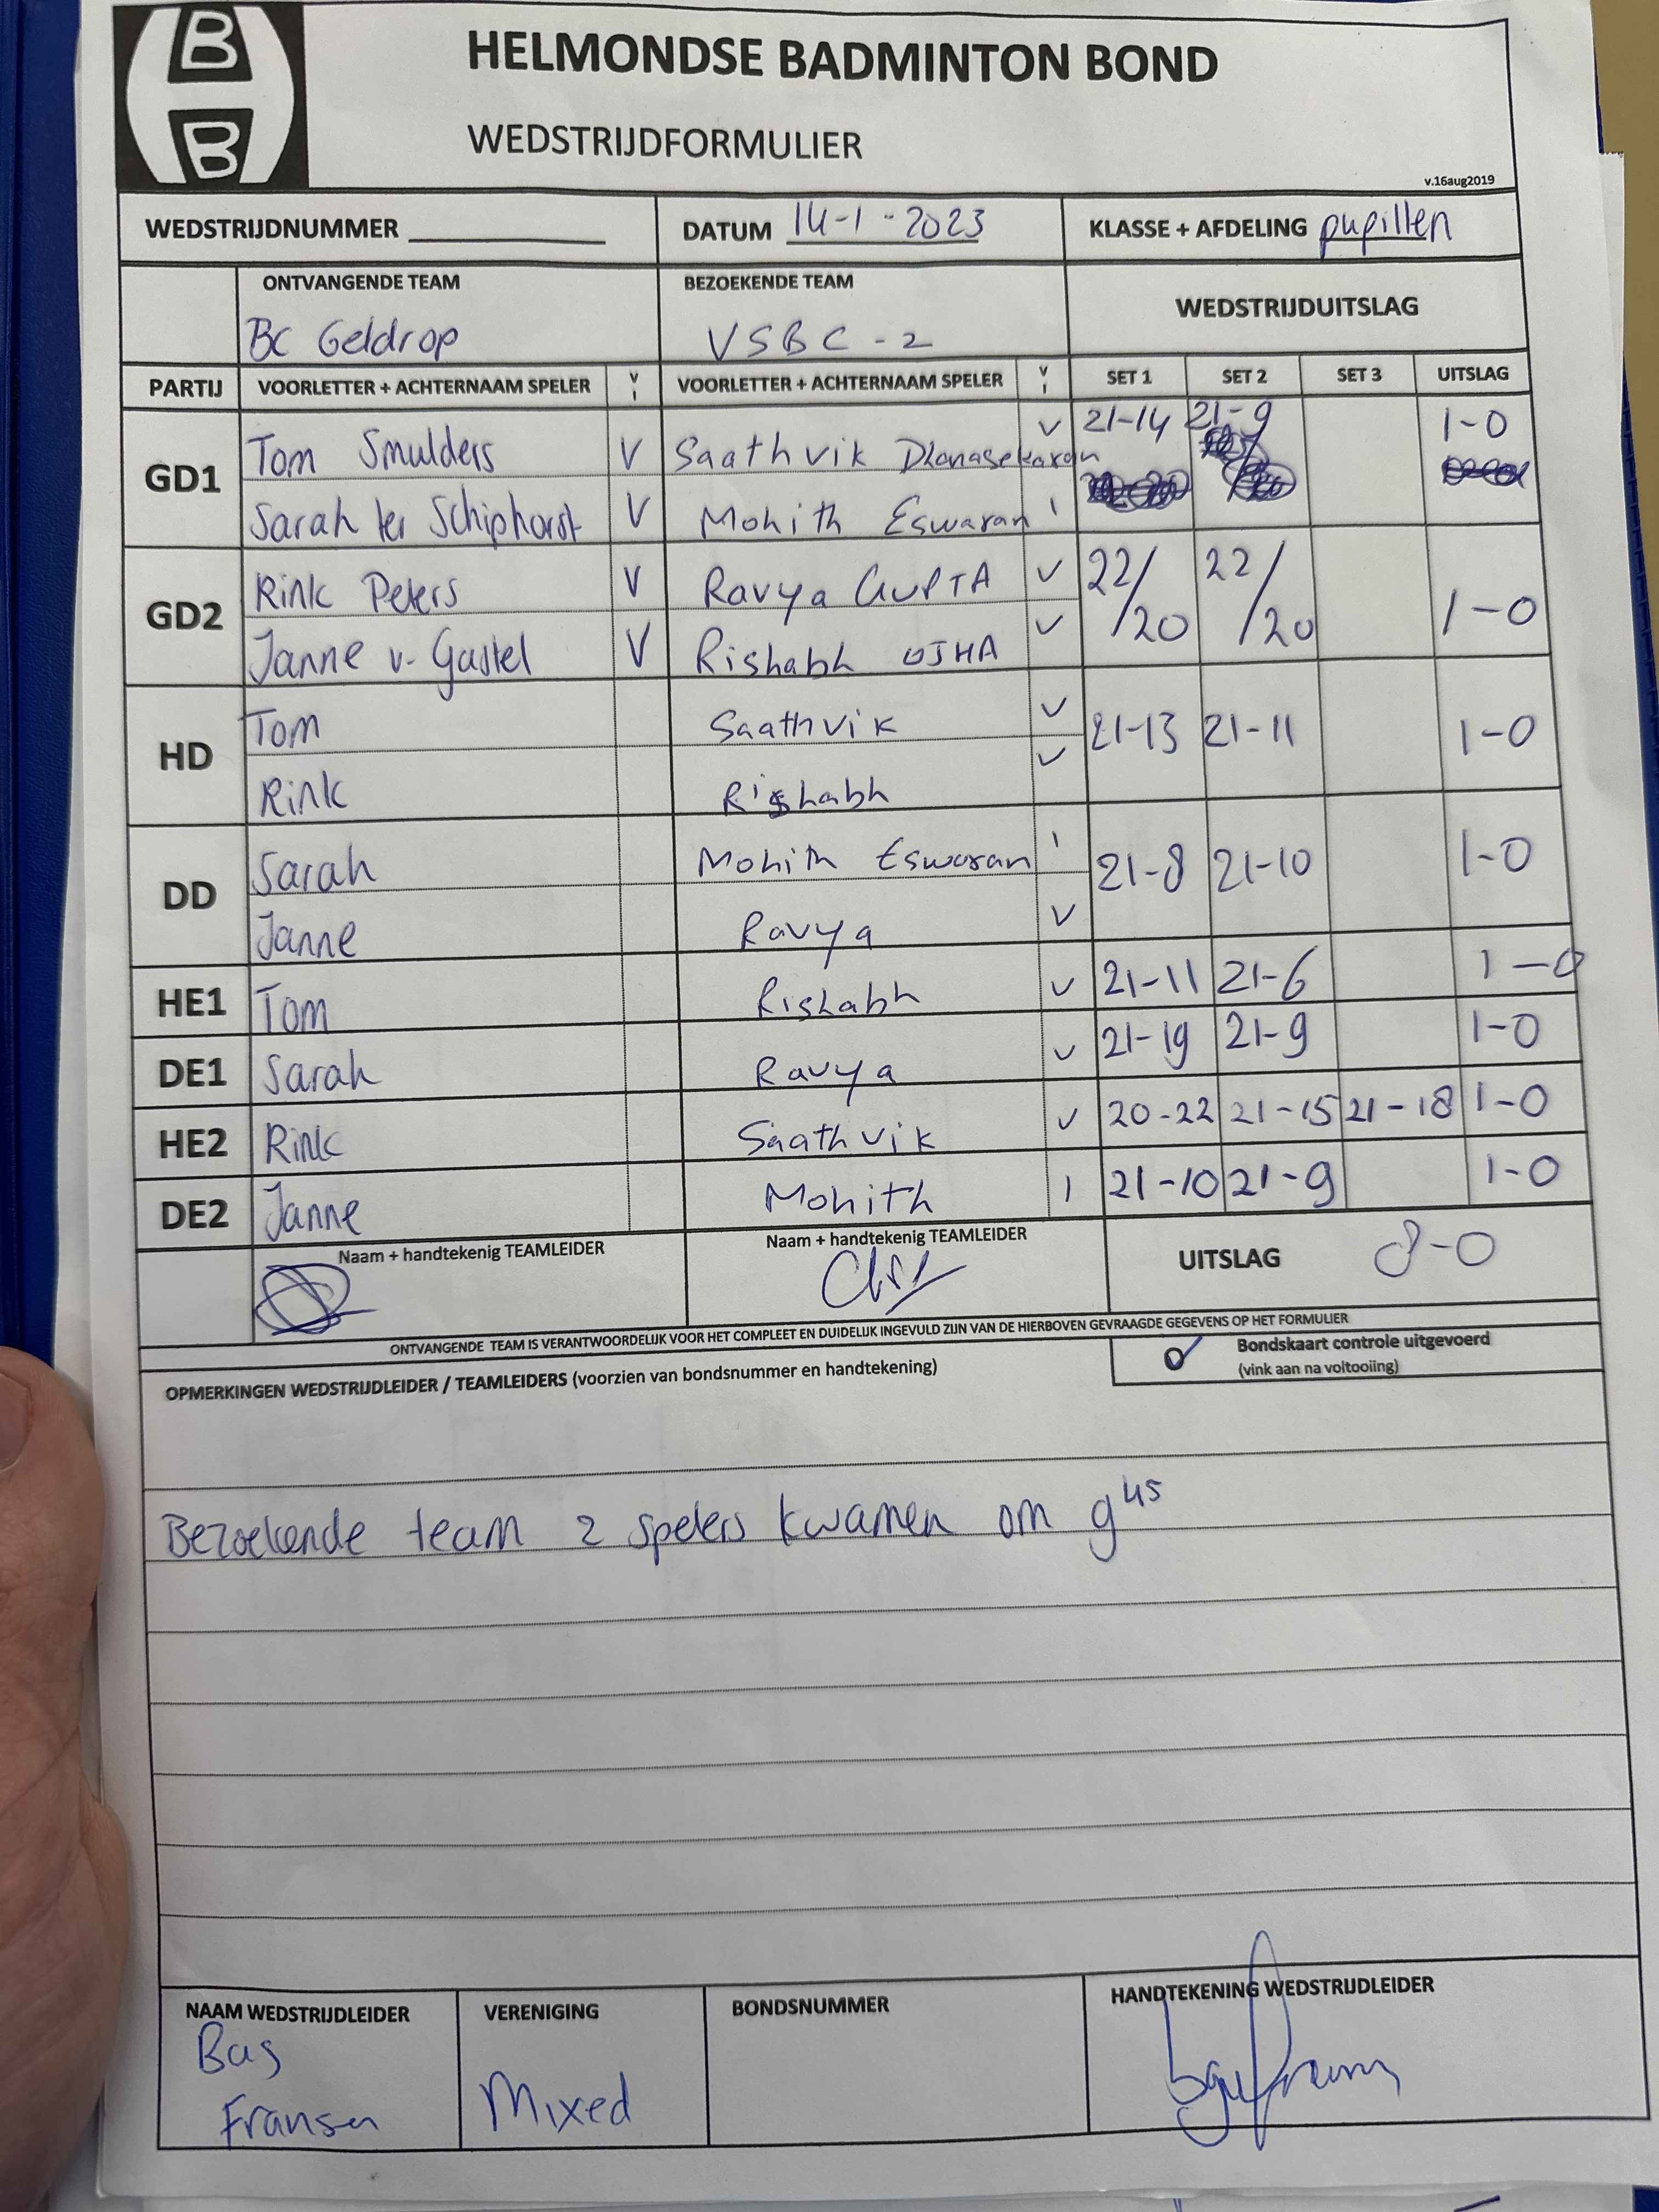 B
B
HELMONDSE BADMINTON BOND
WEDSTRIJDFORMULIER
v.16aug2019
WEDSTRIJDNUMMER DATUM 14-1-2023 KLASSE + AFDELING pupillen
ONTVANGENDE TEAM BEZOEKENDE TEAM WEDSTRIJDUITSLAG
BC Geldrop VSBC-2
PARTIJ VOORLETTER + ACHTERNAAM SPELER V I VOORLETTER + ACHTERNAAM SPELER V I SET 1 SET 2 SET 3 UITSLAG
GD1 Tom Smulders V Saathvik Dhanasekaran V 21-14 21-9 1-0
Sarah ter Schiphorst V Mohith Eswaran I
GD2 Rink Peters V Ravya GUPTA V 22/20 22/20 1-0
Janne v. Gastel V Rishabh OJHA V
HD Tom Saathvik V 21-13 21-11 1-0
Rink Rishabh V
DD Sarah Mohith Eswaran I 21-8 21-10 1-0
Janne Ravya V
HE1 Tom Rishabh V 21-11 21-6 1-0
DE1 Sarah Ravya V 21-19 21-9 1-0
HE2 Rink Saathvik V 20-22 21-15 21-18 1-0
DE2 Janne Mohith I 21-10 21-9 1-0
Naam + handtekenig TEAMLEIDER Naam + handtekenig TEAMLEIDER UITSLAG 8-0
ONTVANGENDE TEAM IS VERANTWOORDELIJK VOOR HET COMPLEET EN DUIDELIJK INGEVULD ZIJN VAN DE HIERBOVEN GEVRAAGDE GEGEVENS OP HET FORMULIER
Bondskaart controle uitgevoerd
(vink aan na voltooiing)
OPMERKINGEN WEDSTRIJDLEIDER / TEAMLEIDERS (voorzien van bondsnummer en handtekening)
Bezoekende team 2 spelers kwamen om 9 45
NAAM WEDSTRIJDLEIDER VERENIGING BONDSNUMMER HANDTEKENING WEDSTRIJDLEIDER
Bas
Fransen Mixed